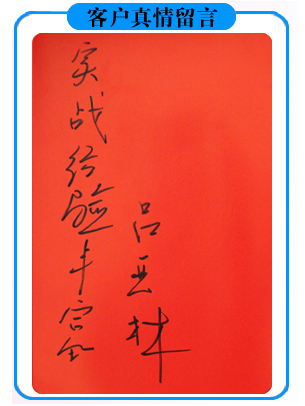 客户真情留言
实战经验丰富
吕亚林